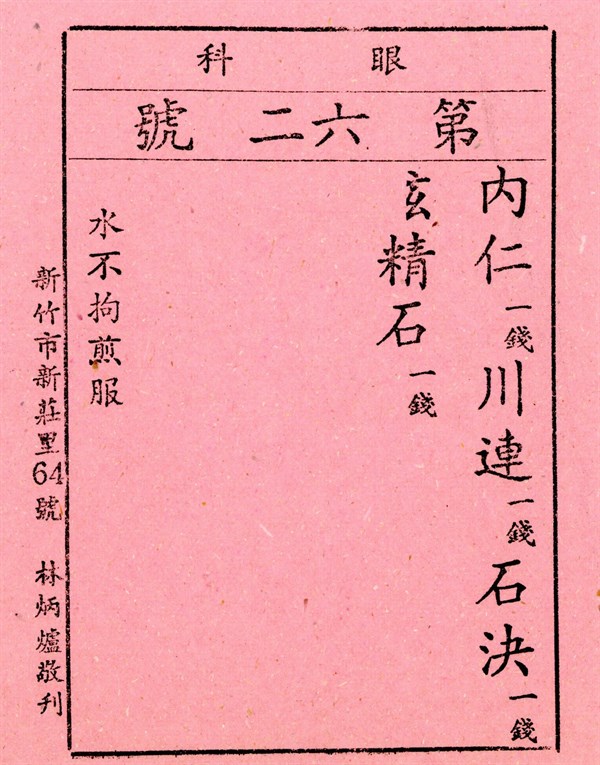 眼科
第六二號
內仁一錢川連一錢石決一錢
玄精石一錢
水不拘煎服
新竹市新莊里64號 林炳爐敬刊